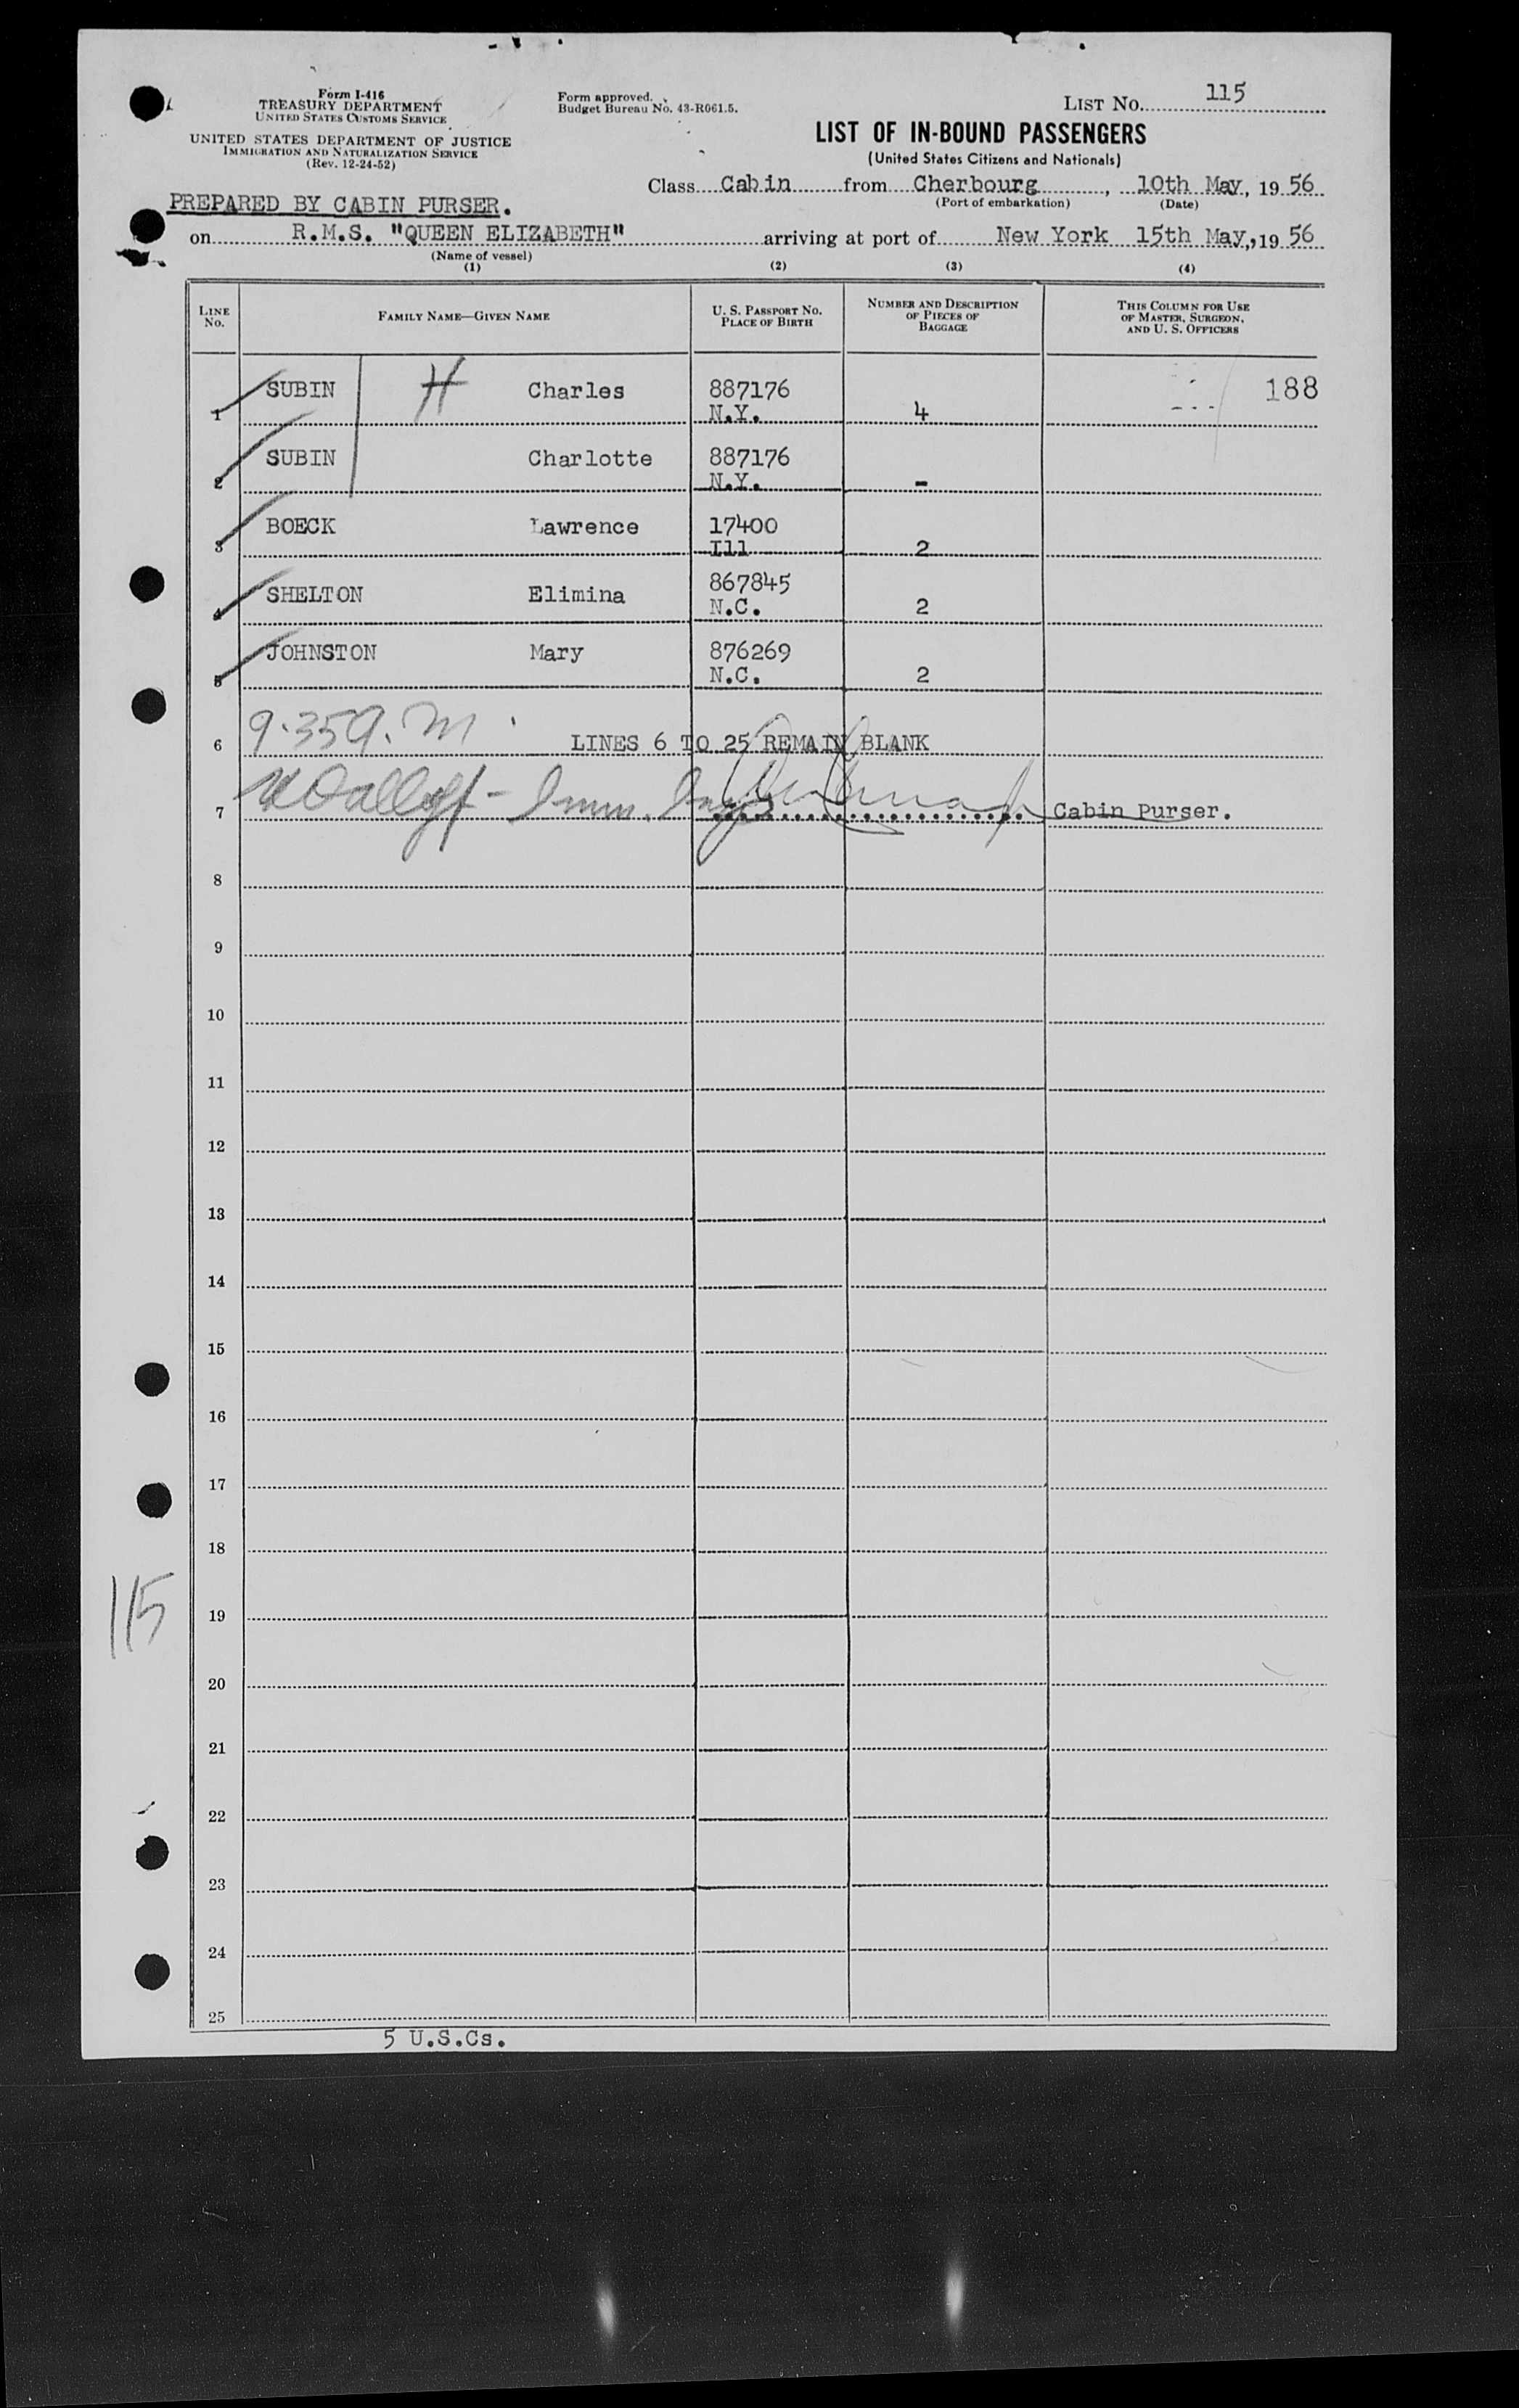 Form I-416
TREASURY DEPARTMENT
UNITED STATES CUSTOMS SERVICE
UNITED STATES DEPARTMENT OF JUSTICE
IMMIGRATION AND NATURALIZATION SERVICE
(Rev. 12-24-52)
Form approved.
Budget Bureau No. 43-R061.5.
LIST NO. 115
LIST OF IN-BOUND PASSENGERS
(United States Citizens and Nationals)
Class Cabin from Cherbourg, 10th May, 19 56
(Port of embarkation) (Date)
PREPARED BY CABIN PURSER.
on R.M.S. "QUEEN ELIZABETH" arriving at port of New York 15th May, 19 56
(Name of vessel)
(1) (2) (3) (4)
LINE NO. FAMILY NAME—GIVEN NAME U. S. PASSPORT NO. PLACE OF BIRTH NUMBER AND DESCRIPTION OF PIECES OF BAGGAGE THIS COLUMN FOR USE OF MASTER, SURGEON, AND U. S. OFFICERS
SUBIN H Charles 887176 188
1 N.Y. 4
SUBIN Charlotte 887176
2 N.Y. -
BOECK Lawrence 17400
3 Ill 2
SHELTON Elimina 867845
4 N.C. 2
JOHNSTON Mary 876269
5 N.C. 2
9.35 A.M.
6 LINES 6 TO 25 REMAIN BLANK
7 Imm. Insp Cabin Purser.
8
9
10
11
12
13
14
15
16
17
18
115
19
20
21
22
23
24
25
5 U.S.Cs.